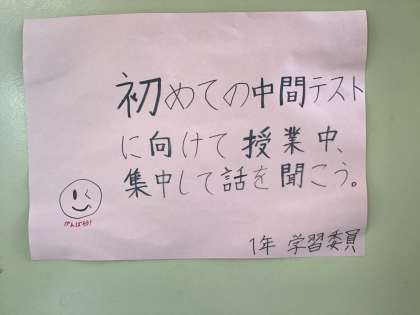 初めての中間テスト
に向けて授業中、
集中して話を聞こう。
がんばろう!
1年 学習委員